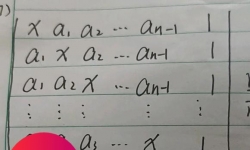 7)
x a₁ a₂ ⋯ aₙ₋₁ 1
a₁ x a₂ ⋯ aₙ₋₁ 1
a₁ a₂ x ⋯ aₙ₋₁ 1
⋮ ⋮ ⋮ ⋮ ⋮
a₃ ⋯ x 1